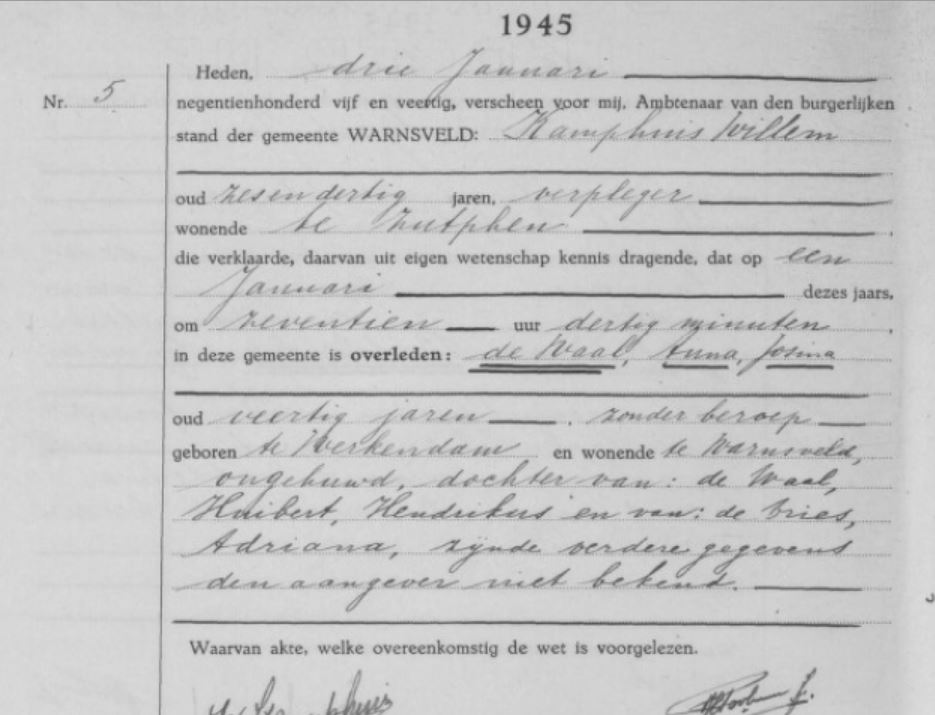 1945
Heden, drie Januari
Nr. 5 negentienhonderd vijf en veertig, verscheen voor mij, Ambtenaar van den burgerlijken
stand der gemeente WARNSVELD: Kamphuis Willem
oud zesendertig jaren, verpleger
wonende te Zutphen
die verklaarde, daarvan uit eigen wetenschap kennis dragende, dat op een
Januari dezes jaars,
om zeventien uur dertig minuten
in deze gemeente is overleden: de Waal, Anna, Josina
oud veertig jaren, zonder beroep
geboren te Werkendam en wonende te Warnsveld,
ongehuwd, dochter van: de Waal,
Huibert, Hendrikus en van: de Vries,
Adriana, zijnde verdere gegevens
den aangever niet bekend.
Waarvan akte, welke overeenkomstig de wet is voorgelezen.